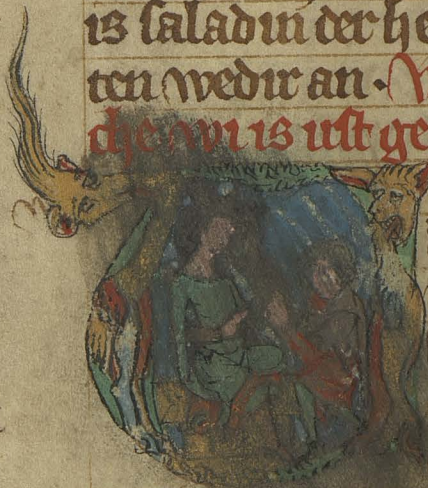 is saladin der he
ten wedir an · 
che wi is ust ge